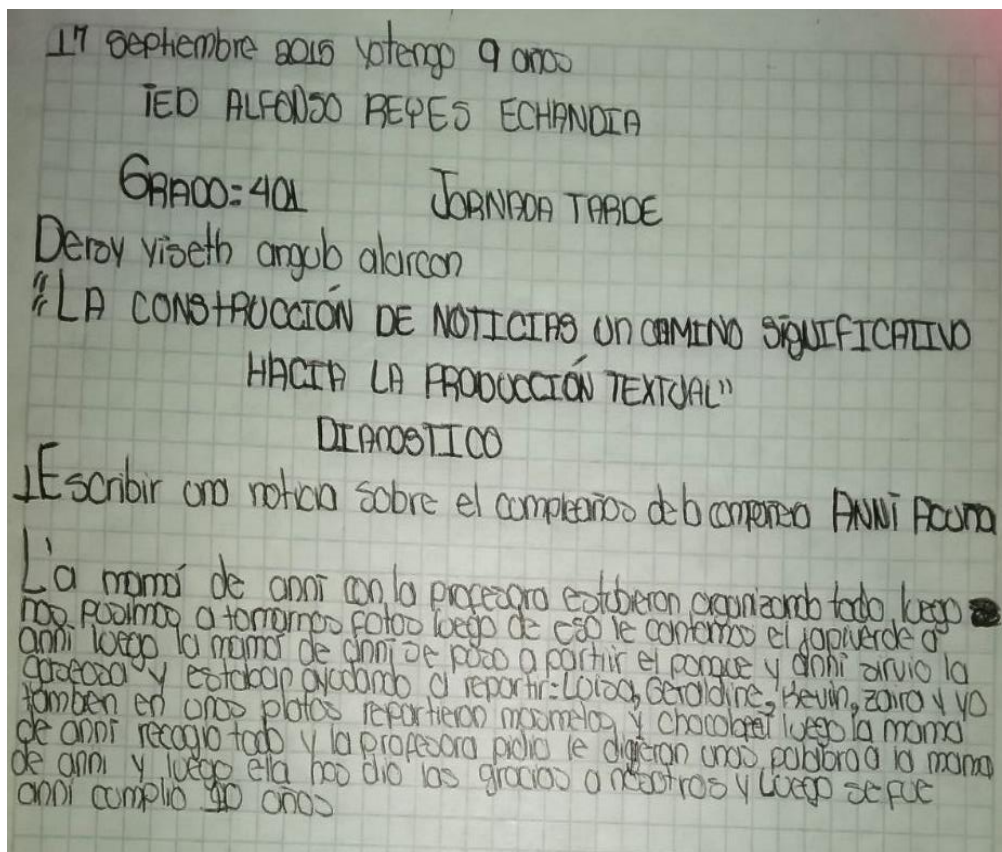 17 septiembre 2015 yo tengo 9 años
IED ALFONSO REYES ECHANDIA
GRADO=401 JORNADA TARDE
Deisy yiseth angulo alarcon
"LA CONSTRUCCIÓN DE NOTICIAS UN CAMINO SIGNIFICATIVO
HACIA LA PRODUCCIÓN TEXTUAL"
DIANOSTICO
1Escribir una noticia sobre el compleaños de la compañera ANNI Acuña
La mamá de anni con la profesora estubieron organizando todo luego
nos pusimos a tomarnos fotos luego de eso le cantamos el japiverde a
anni luego la mamá de anni se puso a partir el ponque y anni sirvio la
gaseosa y estaban ayudando a repartir: Loiza, Geraldine, Kevin, zaira y yo
tambien en unos platos repartieron masmelos y chocolate luego la mama
de anni recogio todo y la profesora pidio le digeran unas palabra a la mama
de anni y luego ella nos dio las gracias a nosotros y luego se fue
anni complio 10 años